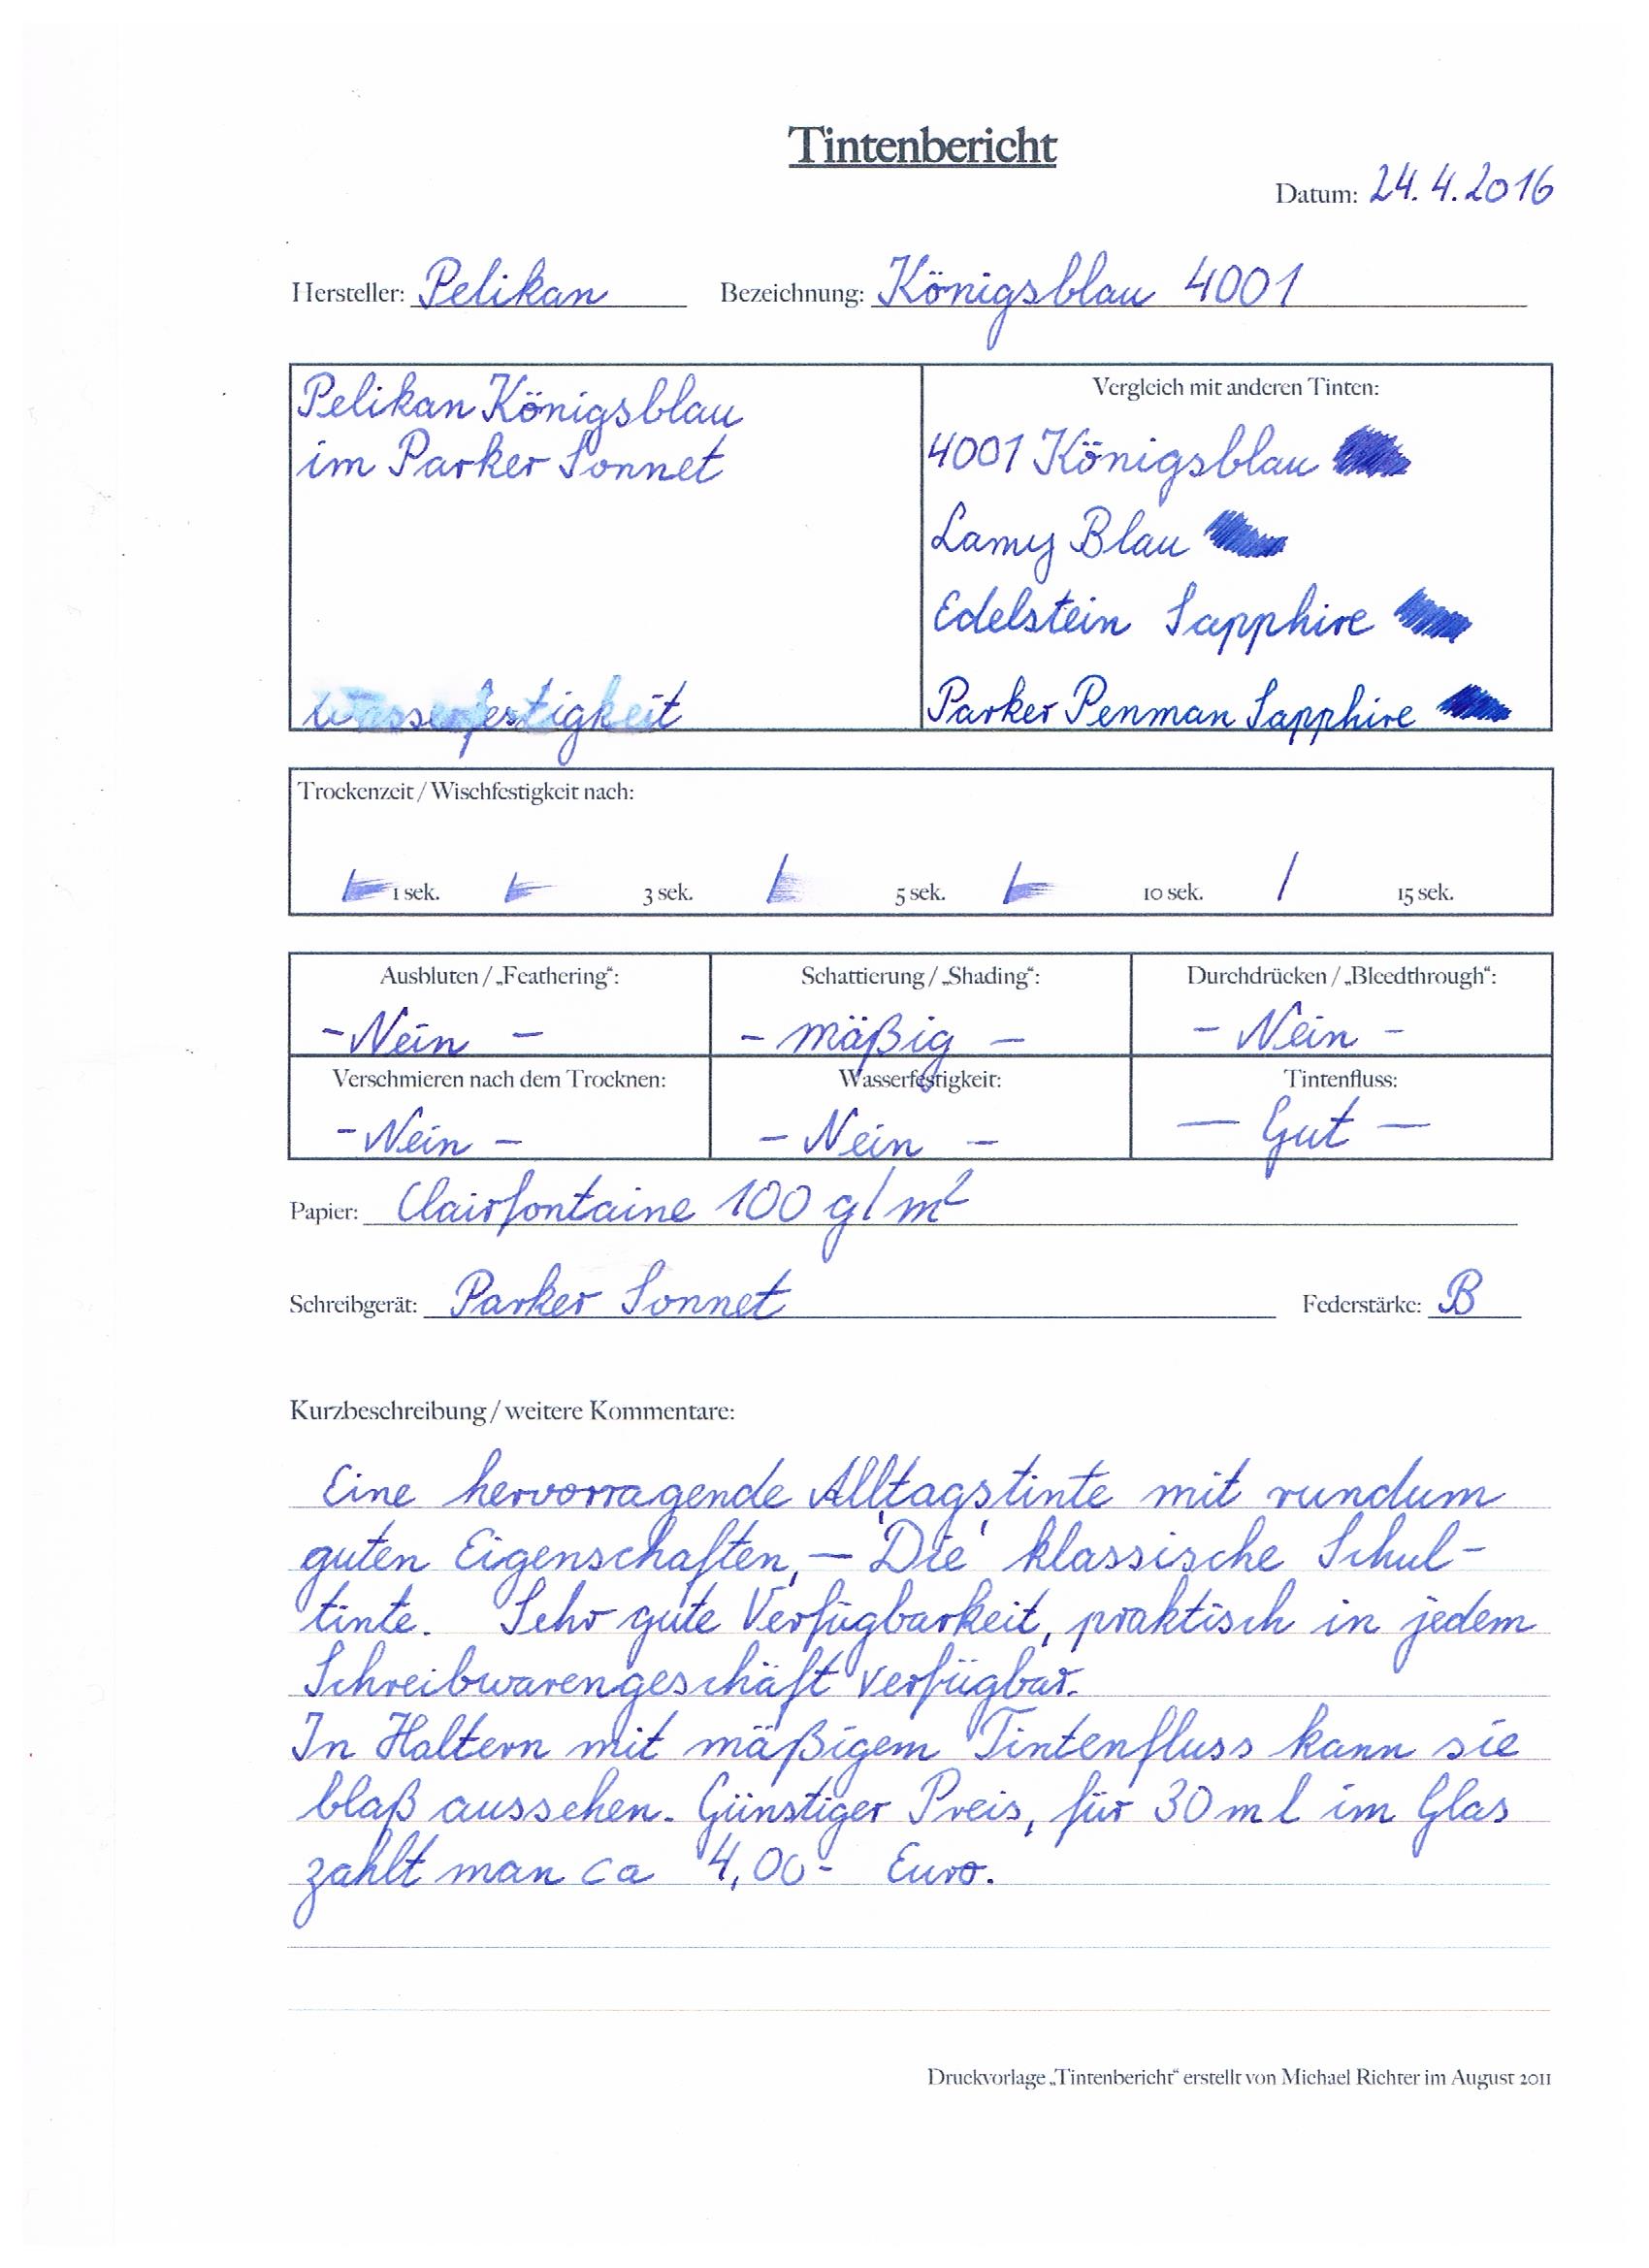 Tintenbericht
Datum: 24.4.2016
Hersteller: Pelikan Bezeichnung: Königsblau 4001
Pelikan Königsblau
im Parker Sonnet
Wasserfestigkeit
Vergleich mit anderen Tinten:
4001 Königsblau
Lamy Blau
Edelstein Sapphire
Parker Penman Sapphire
Trockenzeit / Wischfestigkeit nach:
1 sek. 3 sek. 5 sek. 10 sek. 15 sek.
Ausbluten / „Feathering“: Schattierung / „Shading“: Durchdrücken / „Bleedthrough“:
- Nein - - mäßig - - Nein -
Verschmieren nach dem Trocknen: Wasserfestigkeit: Tintenfluss:
- Nein - - Nein - - Gut -
Papier: Clairfontaine 100 g/m²
Schreibgerät: Parker Sonnet Federstärke: B
Kurzbeschreibung / weitere Kommentare:
Eine hervorragende Alltagstinte mit rundum
guten Eigenschaften, – 'Die' klassische Schul-
tinte. Sehr gute Verfügbarkeit, praktisch in jedem
Schreibwarengeschäft verfügbar.
In Haltern mit mäßigem Tintenfluss kann sie
blaß aussehen. Günstiger Preis, für 30 ml im Glas
zahlt man ca 4,00- Euro.
Druckvorlage „Tintenbericht“ erstellt von Michael Richter im August 2011